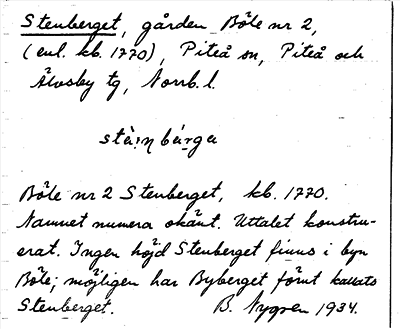 Stenberget, gården Böle nr 2,
(enl. kb. 1770), Piteå sn, Piteå och
Älvsby tg, Norrb. l.
stä̀:ɳ bárga
Böle nr 2 Stenberget, kb. 1770.
Namnet numera okänt. Uttalet konstru-
erat. Ingen höjd Stenberget finns i byn
Böle; möjligen har Byberget förut kallats
Stenberget. B. Nygren 1934.